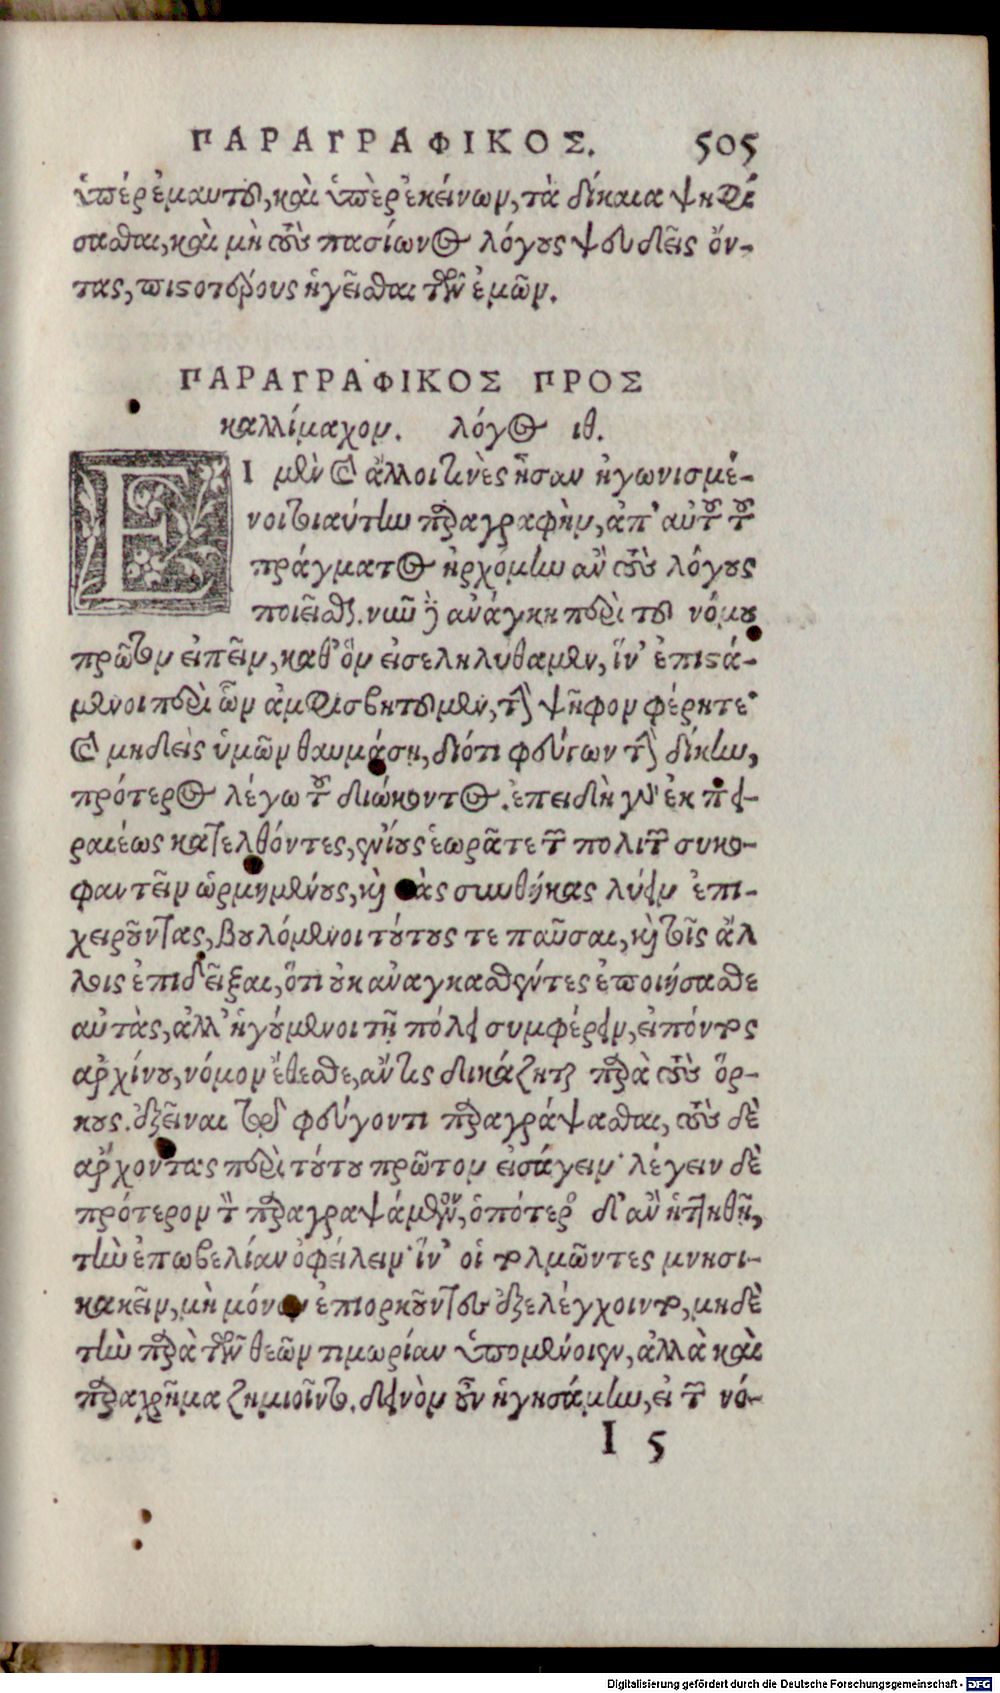 ΠΑΡΑΓΡΑΦΙΚΟΣ. 505
ὑπὲρ ἐμαυτοῦ, καὶ ὑπὲρ ἐκείνων, τὰ δίκαια ψηφί
σασθαι, καὶ μὴ τοὺς πασίωνος λόγους ψευδεῖς ὄν-
τας, πιστοτέρους ἡγεῖσθαι τῶν ἐμῶν.
ΠΑΡΑΓΡΑΦΙΚΟΣ ΠΡΟΣ
καλλίμαχον. λόγος ιθ.
ΕΙ μὲν καὶ ἄλλοι τινὲς ἦσαν ἠγωνισμέ-
νοι τοιαύτην παραγραφὴν, ἀπ' αὐτοῦ τοῦ
πράγματος ἠρχόμην ἂν τοὺς λόγους
ποιεῖσθαι. νῦν δ' ἀνάγκη περὶ τοῦ νόμου
πρῶτον εἰπεῖν, καθ' ὃν εἰσεληλύθαμεν, ἵν' ἐπιστά-
μενοι περὶ ὧν ἀμφισβητοῦμεν, τὴν ψῆφον φέρητε·
καὶ μηδεὶς ὑμῶν θαυμάσῃ, διότι φεύγων τὴν δίκην,
πρότερος λέγω τοῦ διώκοντος. ἐπειδὴ γὰρ ἐκ πει-
ραιέως κατελθόντες, ἐνίους ἑωρᾶτε τῶν πολιτῶν συκο-
φαντεῖν ὡρμημένους, καὶ τὰς συνθήκας λύειν ἐπι-
χειροῦντας, βουλόμενοι τούτους τε παῦσαι, καὶ τοῖς ἄλ
λοις ἐπιδεῖξαι, ὅτι οὐκ ἀναγκασθέντες ἐποιήσασθε
αὐτὰς, ἀλλ' ἡγούμενοι τῇ πόλει συμφέρειν, εἰπόντος
ἀρχίνου, νόμον ἔθεσθε, ἄν τις δικάζηται παρὰ τοὺς ὅρ-
κους. ἐξεῖναι τῷ φεύγοντι παραγράψασθαι, τοὺς δὲ
ἄρχοντας περὶ τούτου πρῶτον εἰσάγειν· λέγειν δὲ
πρότερον τὸν παραγραψάμενον, ὁπότερος δ' ἂν ἡττηθῇ,
τὴν ἐπωβελίαν ὀφείλειν· ἵν' οἱ τολμῶντες μνησι-
κακεῖν, μὴ μόνον ἐπιορκοῦντες ἐξελέγχοιντο, μηδὲ
τὴν παρὰ τῶν θεῶν τιμωρίαν ὑπομένοιεν, ἀλλὰ καὶ
παραχρῆμα ζημιοῖντο. δεινὸν οὖν ἡγησάμην, εἰ τῶν νό-
I 5
Digitalisierung gefördert durch die Deutsche Forschungsgemeinschaft - DFG